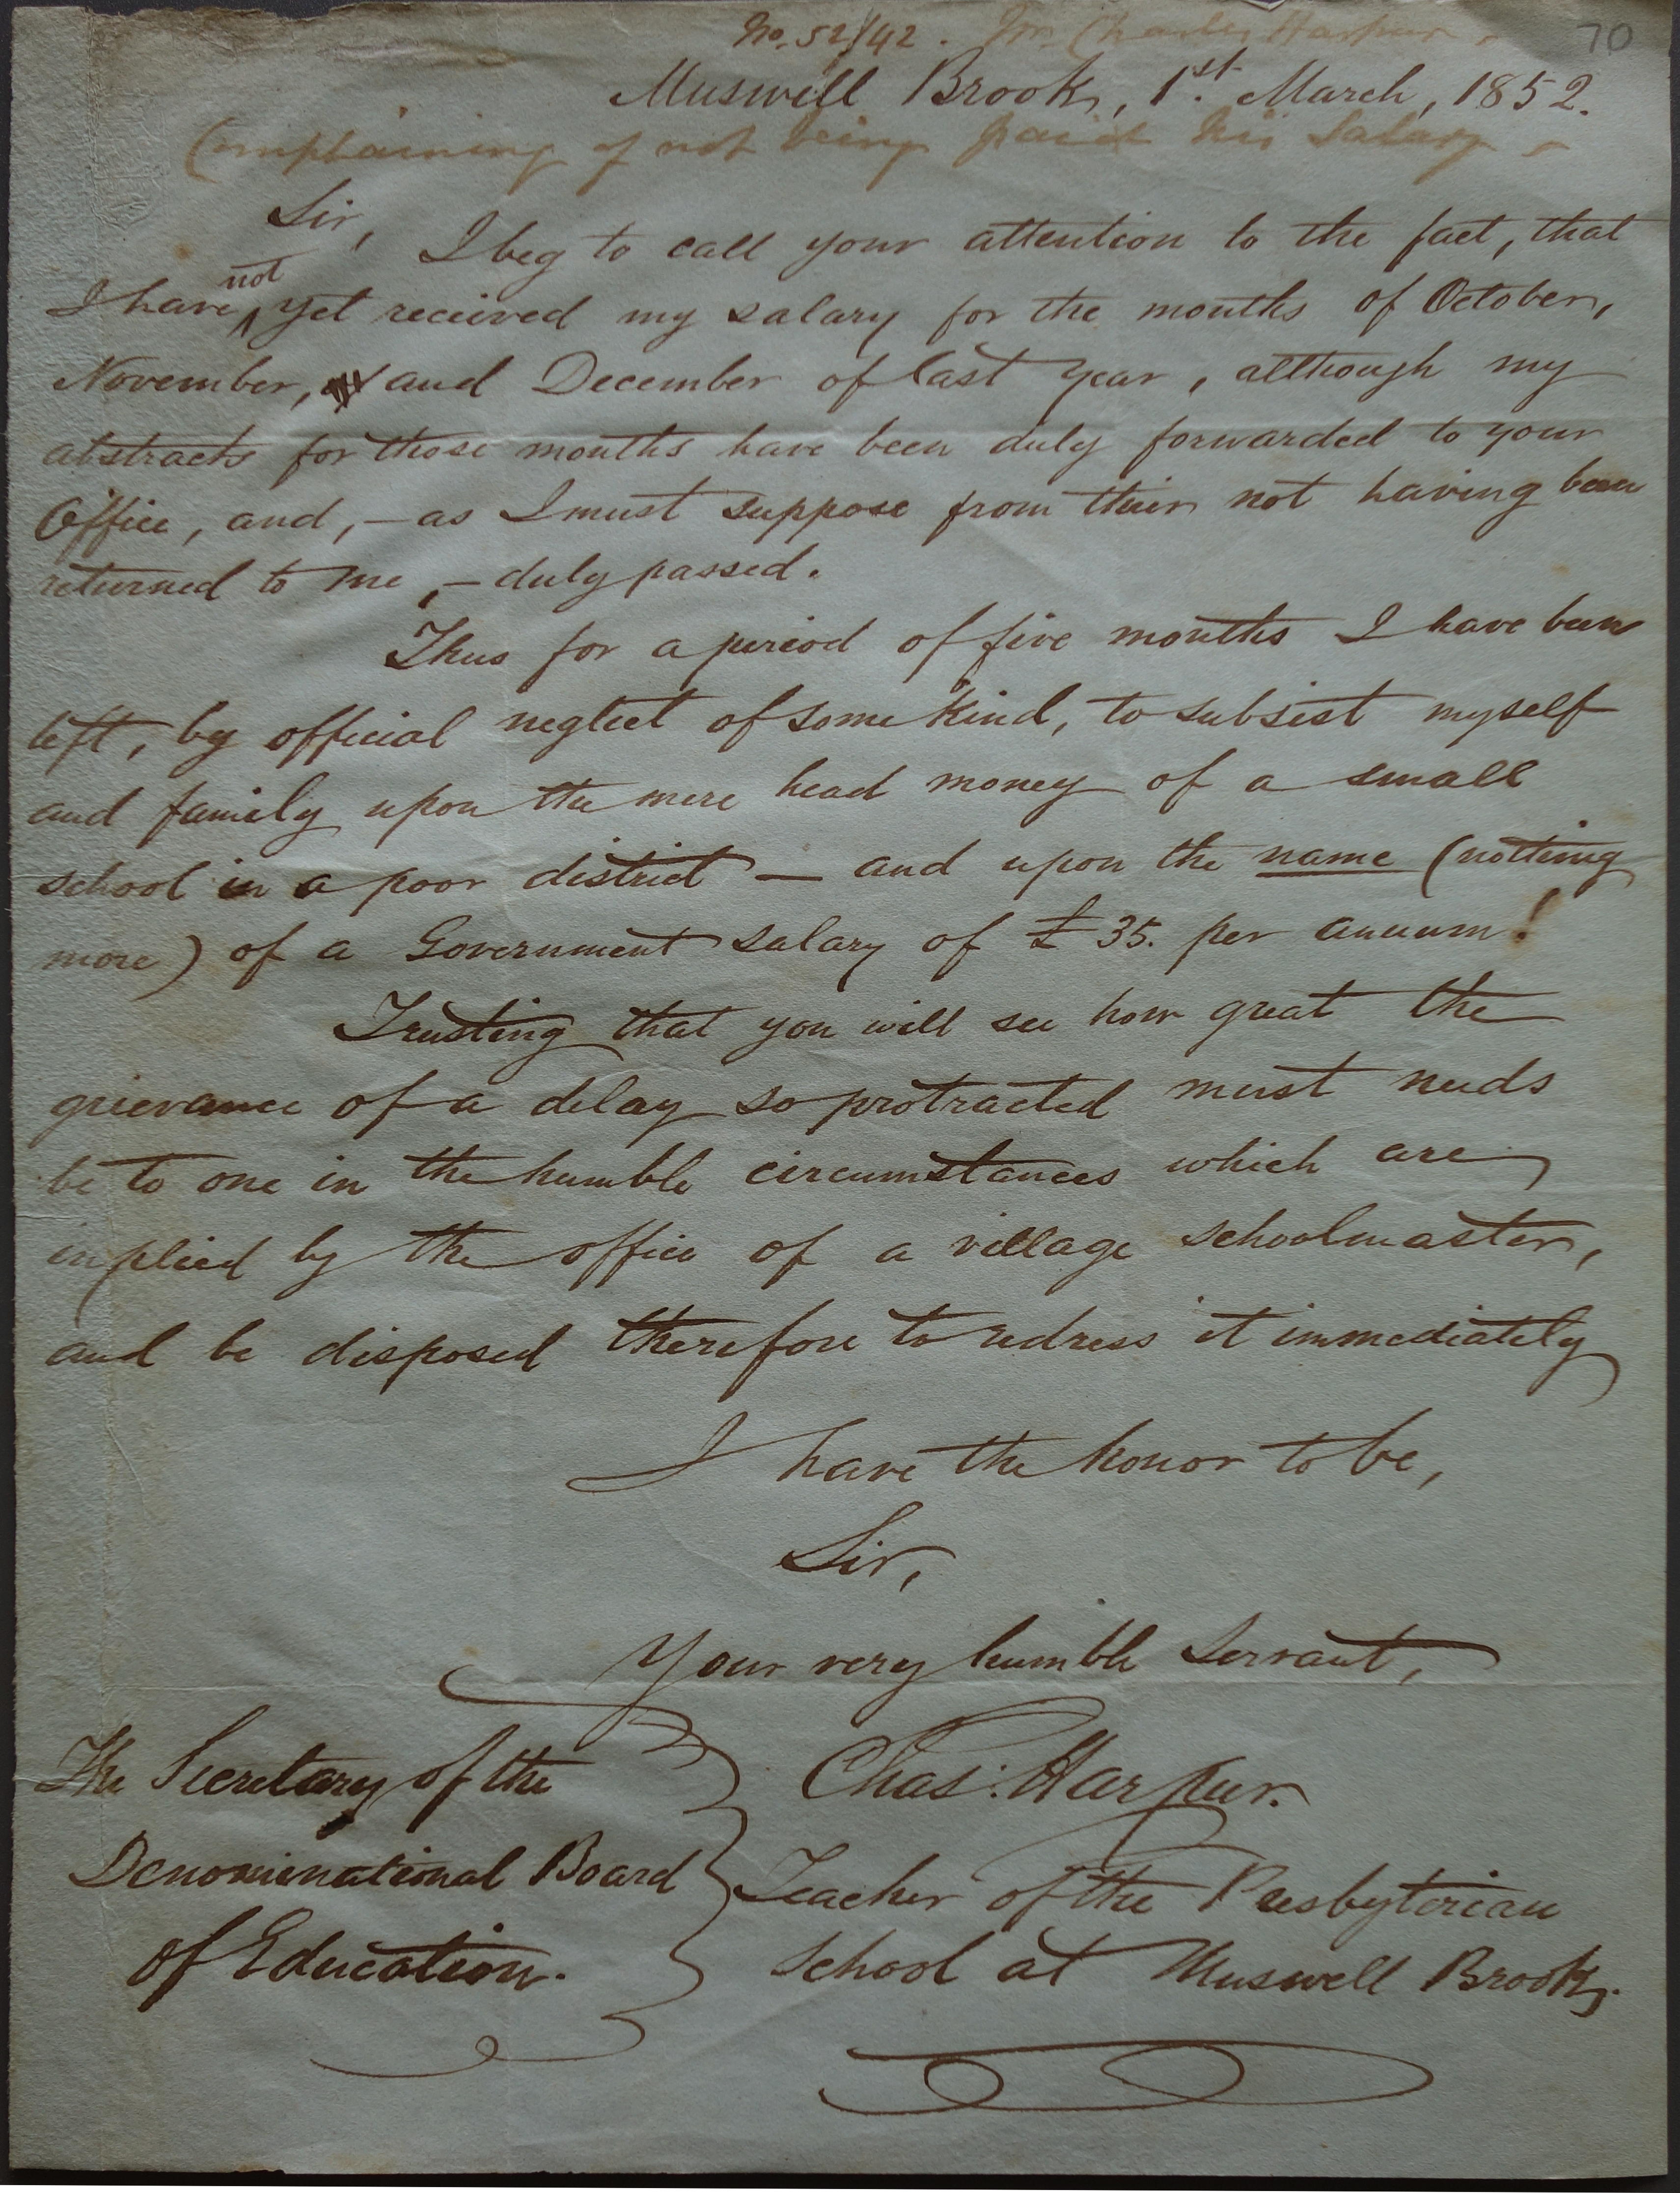 No. 52/42. Mr. Charles Harpur 70
Muswell Brook, 1st. March, 1852.
Complaining of not being paid his Salary
Sir, I beg to call your attention to the fact, that
I have not yet received my salary for the months of October,
November, and December of last year, although my
abstracts for those months have been duly forwarded to your
Office, and, – as I must suppose from their not having been
returned to me, – duly passed.
Thus for a period of five months I have been
left, by official neglect of some kind, to subsist myself
and family upon the mere head money of a small
school in a poor district – and upon the name (nothing
more) of a Government salary of £35. per annum!
Trusting that you will see how great the
grievance of a delay so protracted must needs
be to one in the humble circumstances which are
implied by the office of a village schoolmaster,
and be disposed therefore to redress it immediately
I have the honor to be,
Sir,
Your very humble Servant,
Chas: Harpur.
Teacher of the Presbyterian
School at Muswell Brook.
The Secretary of the
Denominational Board
of Education.